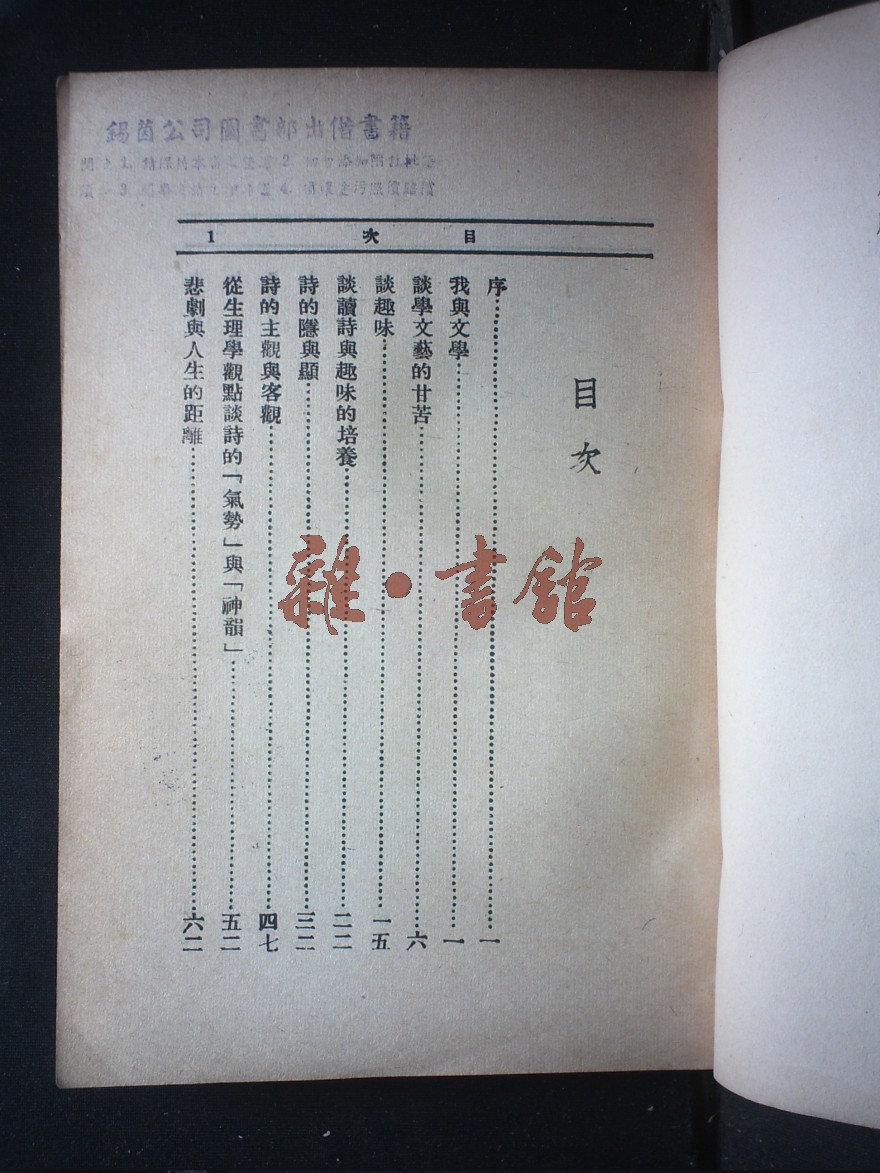 錫茵公司圖書部出借書籍
目次 1
目次
序 一
我與文學 一
談學文藝的甘苦 六
談趣味 一五
談讀詩與趣味的培養 二二
詩的隱與顯 三二
詩的主觀與客觀 四七
從生理學觀點談詩的「氣勢」與「神韻」 五二
悲劇與人生的距離 六二
雜·書舘